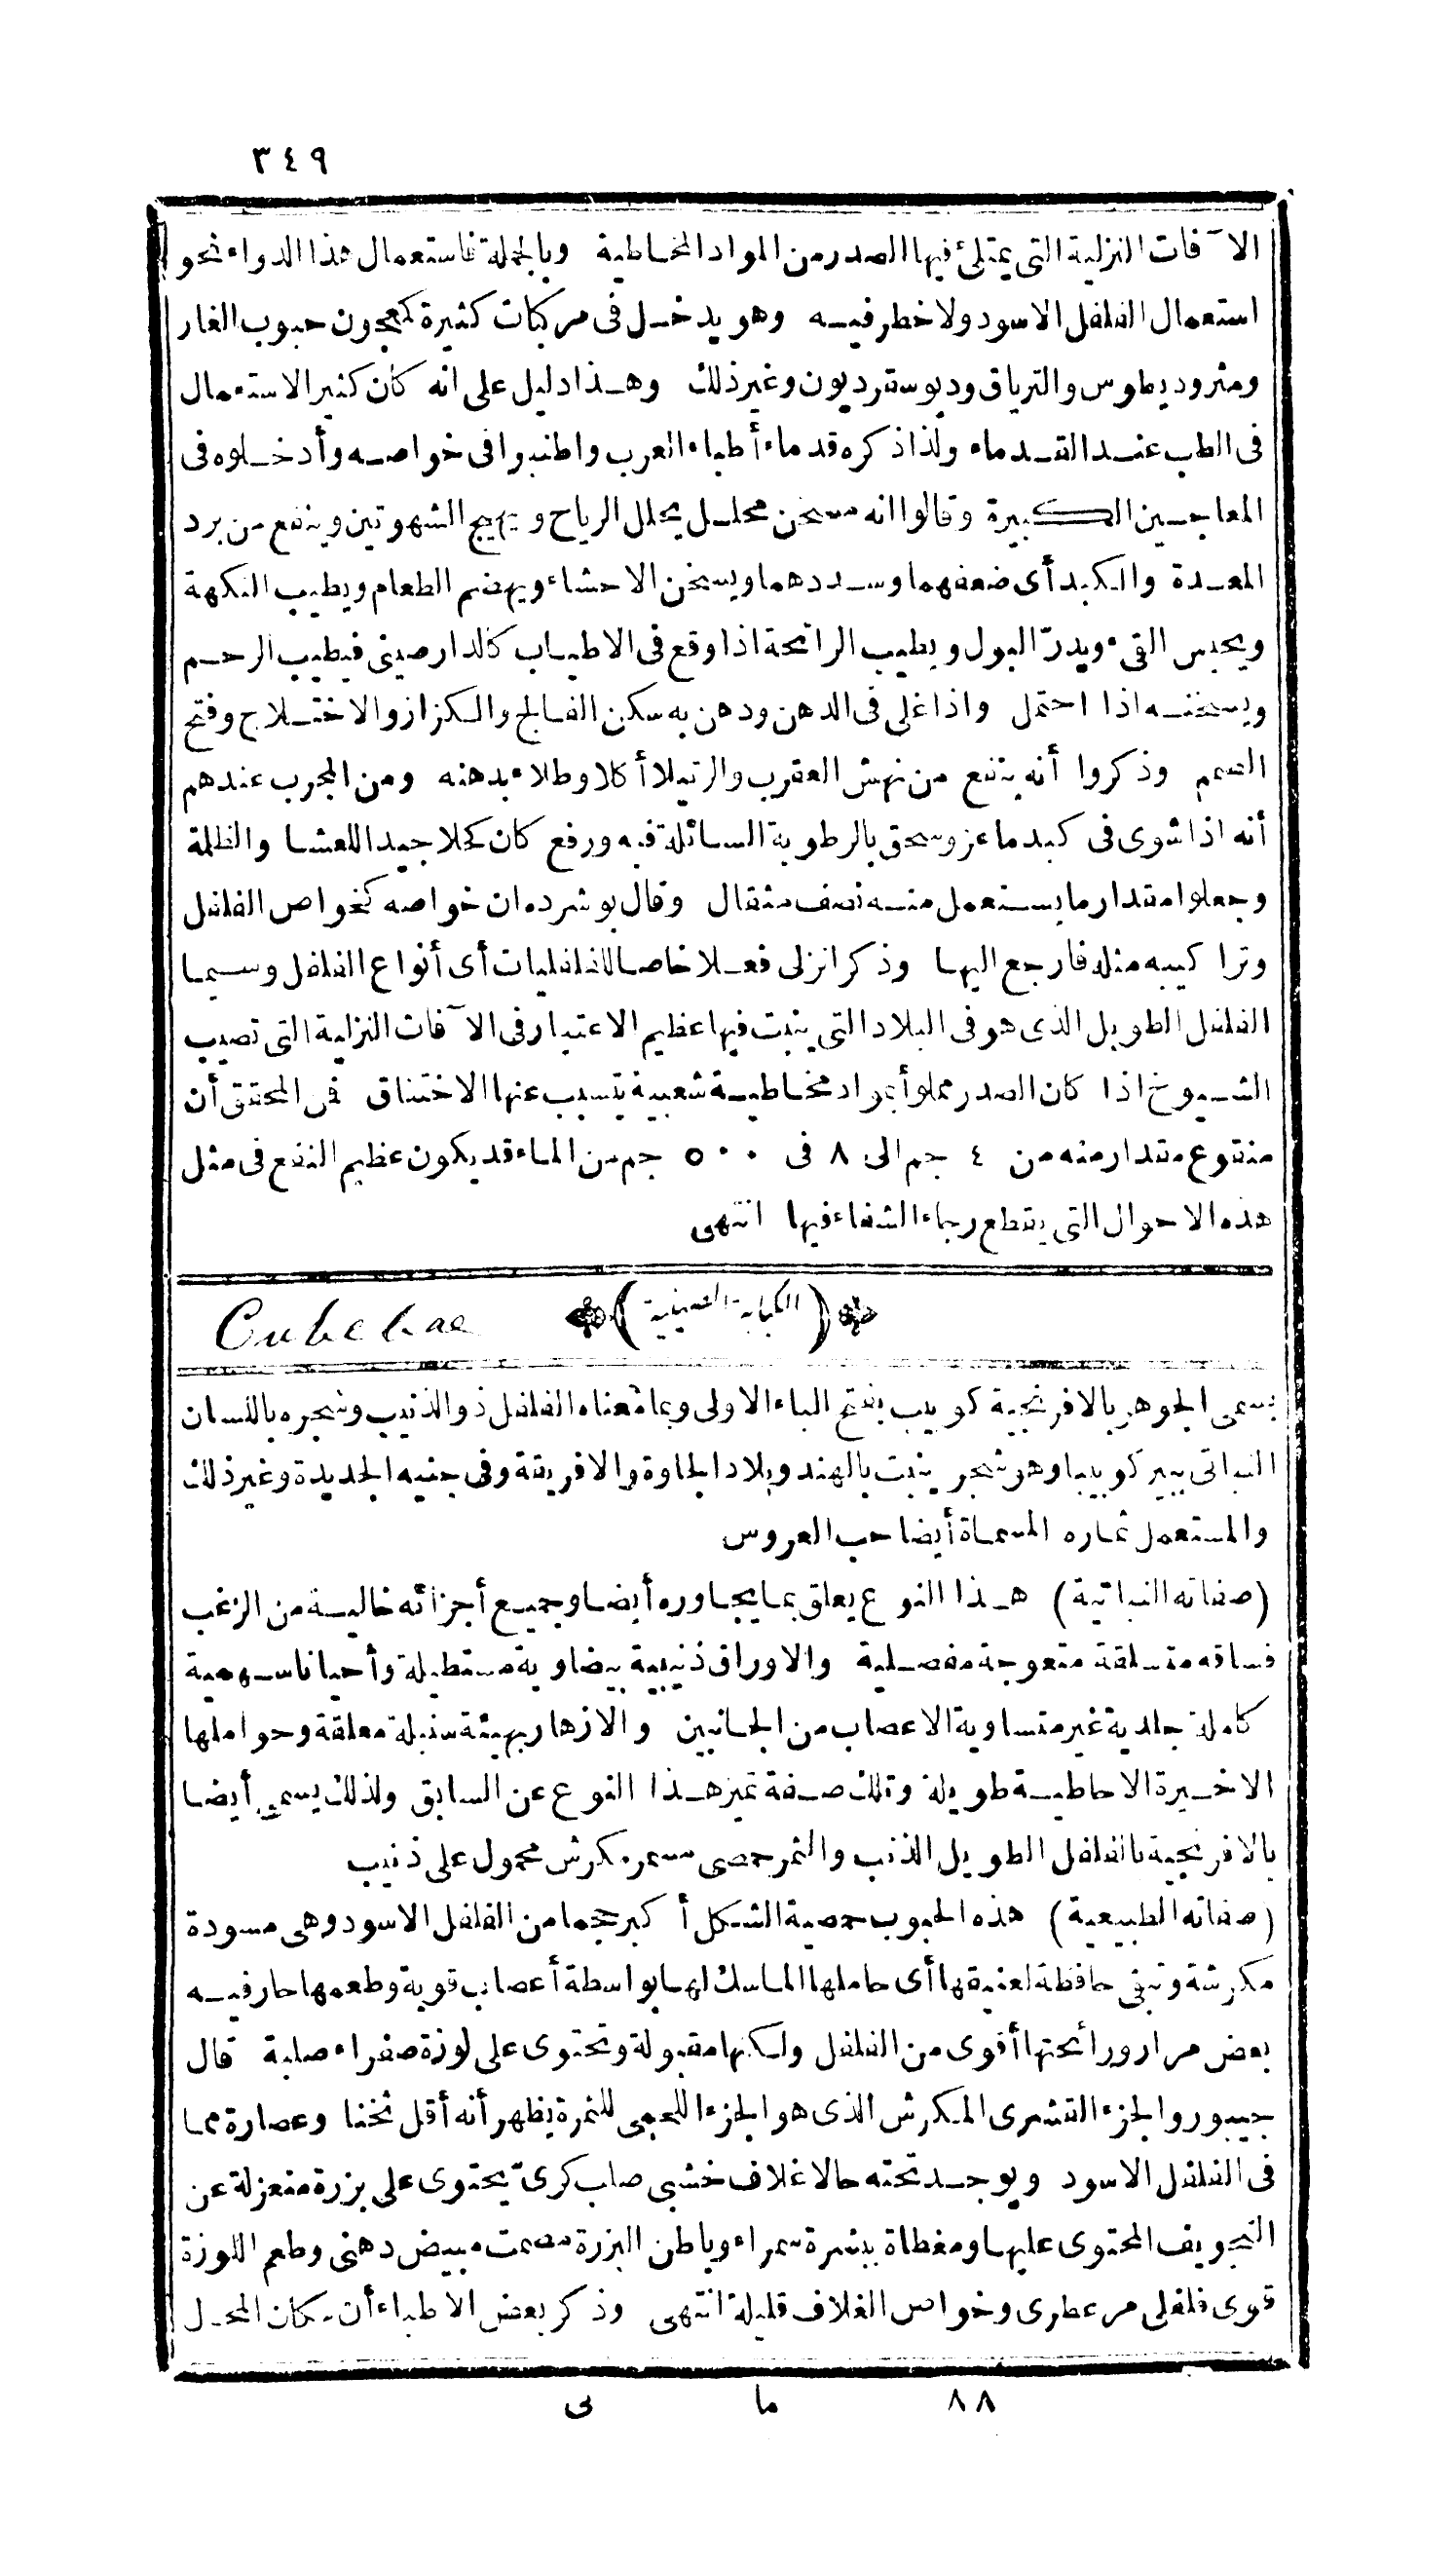 ٣٤٩
الآفات النزلية التى يمتلئ فيها الصدر من المواد المخاطية وبالجملة فاستعمال هذا الدواء نحو
استعمال الفلفل الاسود ولا خطر فيه وهو يدخل فى مركبات كثيرة كمعجون حبوب الغار
ومثروديطوس والترياق وديوسقرديون وغير ذلك وهذا دليل على انه كان كثير الاستعمال
فى الطب عند القدماء ولذا ذكره قدماء أطباء العرب واطنبوا فى خواصه وأدخلوه فى
المعاجين الكبيرة وقالوا انه مسخن محلل يحلل الرياح ويهيج الشهوتين وينفع من برد
المعدة والكبد أى ضعفهما وسددهما ويسخن الاحشاء ويهضم الطعام ويطيب النكهة
ويحبس القىء ويدرّ البول ويطيب الرائحة اذا وقع فى الاطياب كالدارصينى فيطيب الرحم
ويسخنه اذا احتمل واذا غلى فى الدهن ودهن به سكن الفالج والكزاز والاختلاج وفتح
الصمم وذكروا أنه ينفع من نهش العقرب والرتيلا أكلا وطلاء بدهنه ومن المجرب عندهم
أنه اذا شوى فى كبد ماعز وسحق بالرطوبة السائلة فيه ورفع كان كحلا جيدا للعشا والظلمة
وجعلوا مقدار ما يستعمل منه نصف مثقال وقال بوشرده ان خواصه كخواص الفلفل
وتراكيبه مثله فارجع اليها وذكر انزلى فعلا خاصا للفلفليات أى أنواع الفلفل وسيما
الفلفل الطويل الذى هو فى البلاد التى ينبت فيها عظيم الاعتبار فى الآفات النزلية التى تصيب
الشيوخ اذا كان الصدر مملوأ بمواد مخاطية شعبية يتسبب عنها الاختناق فمن المحقق أن
منقوع مقدار منه من ٤ جم الى ٨ فى ٥٠٠ جم من الماء قد يكون عظيم النفع فى مثل
هذه الاحوال التى ينقطع رجاء الشفاء فيها انتهى
(الكبابة الصينية) Cubebae
يسمى الجوهر بالافرنجية كوبيب بفتح الباء الاولى وبما معناه الفلفل ذو الذنيب وشجره باللسان
النباتى بيبر كوبيبا وهو شجر ينبت بالهند وبلاد الجاوة والافريقة وفى جنيه الجديدة وغير ذلك
والمستعمل ثماره المسماة أيضا حب العروس
(صفاته النباتية) هذا النوع يعلق بما يجاوره أيضا وجميع أجزائه خالية من الزغب
فساقه متسلقة متعوجة مفصلية والاوراق ذنيبية بيضاوية مستطيلة وأحيانا سهمية
كاملة جلدية غير متساوية الاعصاب من الجانبين والازهار بهيئة سنبلة معلقة وحواملها
الاخيرة الاحاطية طويلة وتلك صفة تميز هذا النوع عن السابق ولذلك يسمى أيضا
بالافرنجية بالفلفل الطويل الذنب والثمر حمصى مسمر مكرش محمول على ذنيب
(صفاته الطبيعية) هذه الحبوب حمصية الشكل أكبر حجما من الفلفل الاسود وهى مسودة
مكرشة وتبقى حافظة لعنيقها أى حاملها الماسك لها بواسطة أعصاب قوية وطعمها حار فيه
بعض مرار ورائحتها أقوى من الفلفل ولكنها مقبولة وتحتوى على لوزة صفراء صلبة قال
جيبور والجزء القشرى المكرش الذى هو الجزء اللحمى للثمرة يظهر أنه أقل ثخنا وعصارة مما
فى الفلفل الاسود ويوجد تحته حالا غلاف خشبى صلب كرىّ يحتوى على بزرة منعزلة عن
التجويف المحتوى عليها ومغطاة بقشرة سمراء وباطن البزرة مصمت مبيض دهنى وطعم اللوزة
قوى فلفلى مر عطرى وخواص الغلاف قليلة انتهى وذكر بعض الاطباء أن مكان المحل
٨٨ ما نى